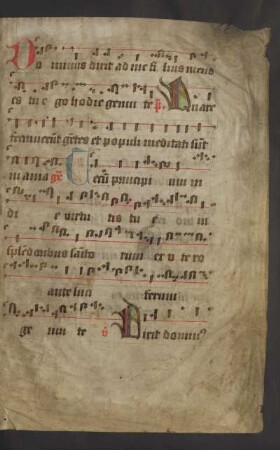 Dominus dixit ad me fi lius meus
es tu e go hodie genui te p̄. Quare
fremuerūt gētes et populi meditati sūt
inania gr̄. Tecū principi um in
di e virtu tis tu e in
splēdoribus sācto rum ex u te ro
ante luci ferum
ge nui te v̄ Dixit dominus